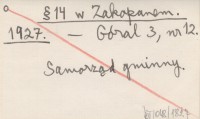 § 14 w Zakopanem.
1927. — Góral 3, nr 12.
Samorząd gminny.